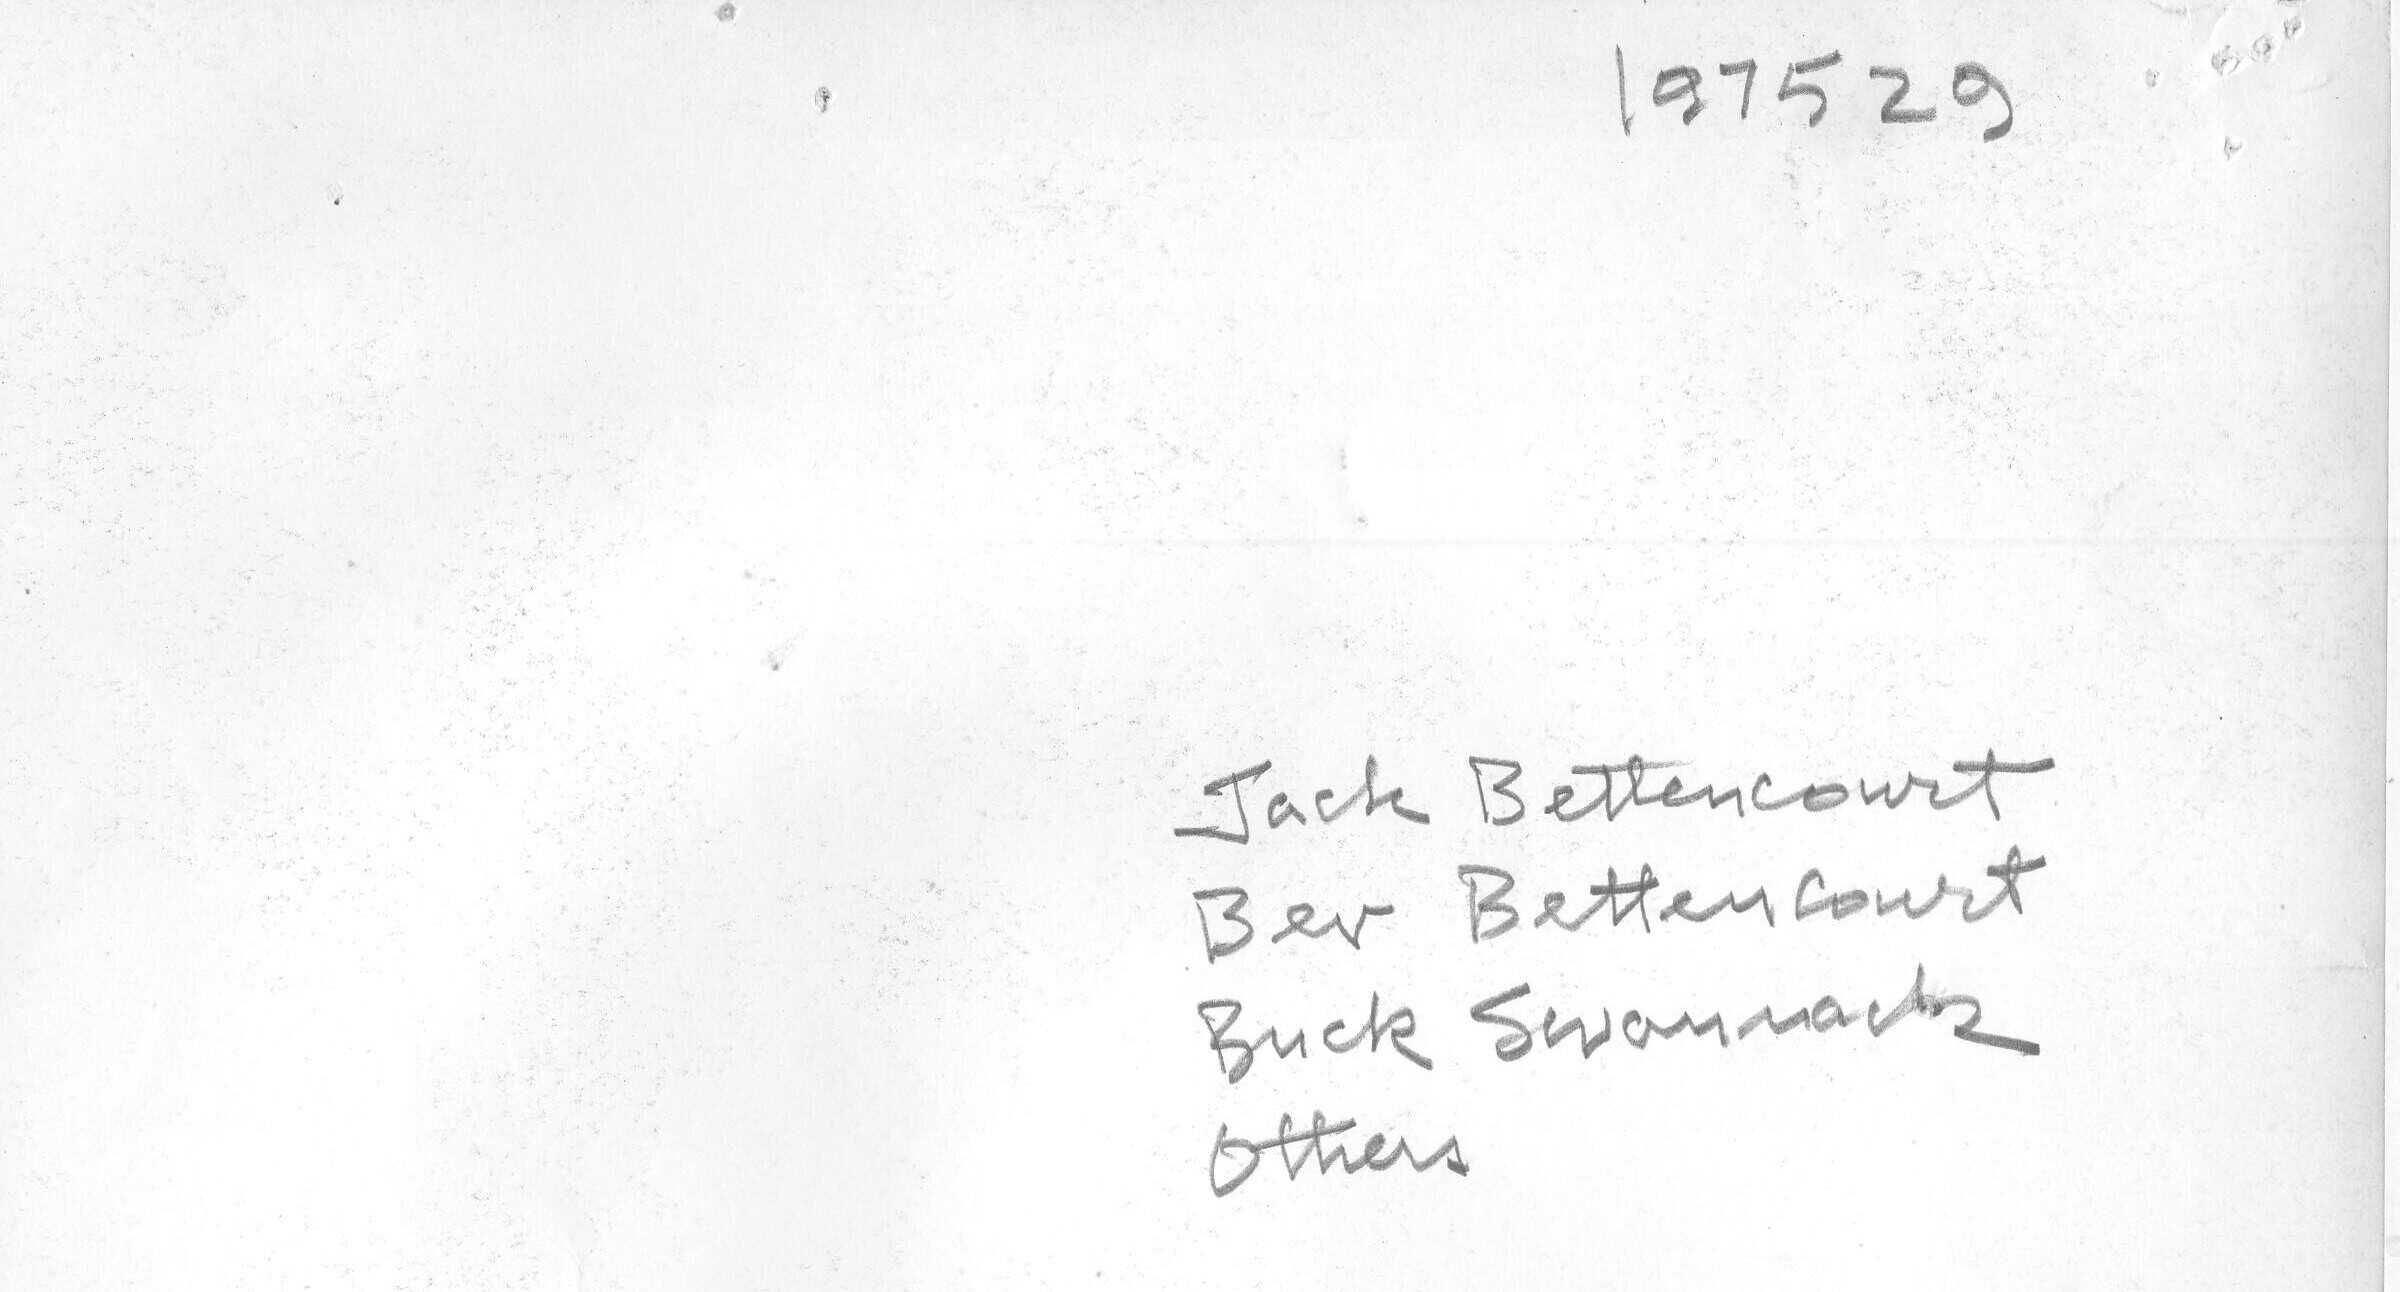 197529
Jack Bettencourt
Bev Bettencourt
Buck Swannack
Others